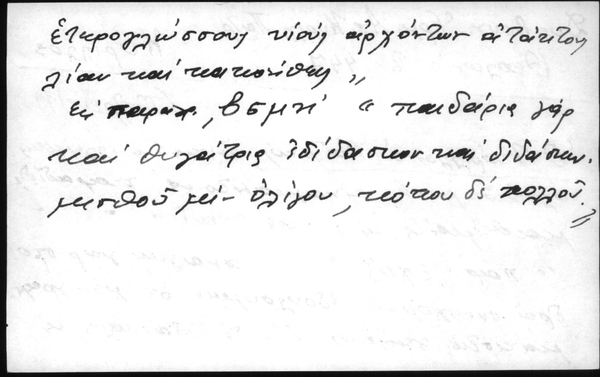 ἑτερογλώσσους υἱοὺς ἀρχόντων ἀτάκτους
λίαν καὶ κακοήθεις „
ἐν παραρ. βσμν' “ παιδάρια γὰρ
καὶ θυγάτρια ἐδίδασκον καὶ διδάσκω.
μισθοῦ μὲν ὀλίγου, κόπου δὲ πολλοῦ. „